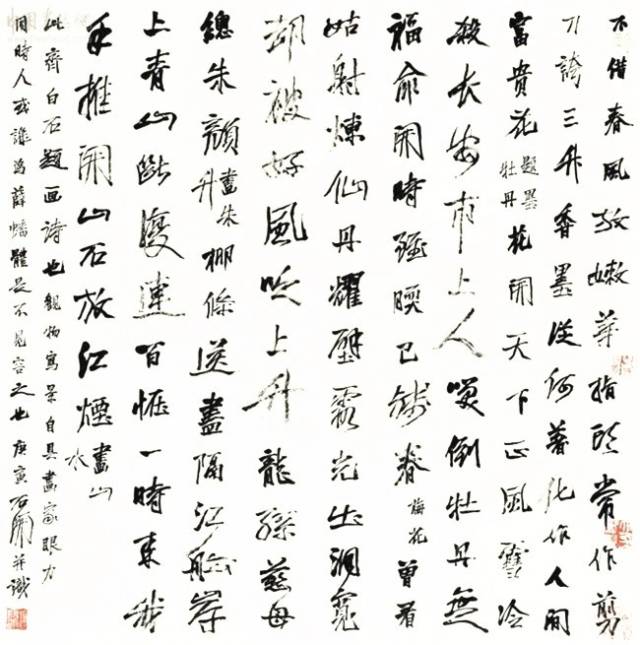 不借春風放嫩華指頭常作剪
刀誇三升香墨從何著化作人間
富貴花題墨牡丹花開天下正風雪冷
殺長安市上人笑倒牡丹無
福命開時強暖已殘春梅花曾看
姑射煉仙丹耀壁霞光出洞寬
却被好風吹上升龍孫慈母
總朱顏畫朱竹柳條送盡隔江船岸
上青山斷復連百怪一時來我
手推開山石放紅煙畫山水
此齊白石題画詩也觀物寫景自具畫家眼力
同時人或譏為薛蟠體是不見容之也庚寅石開并識